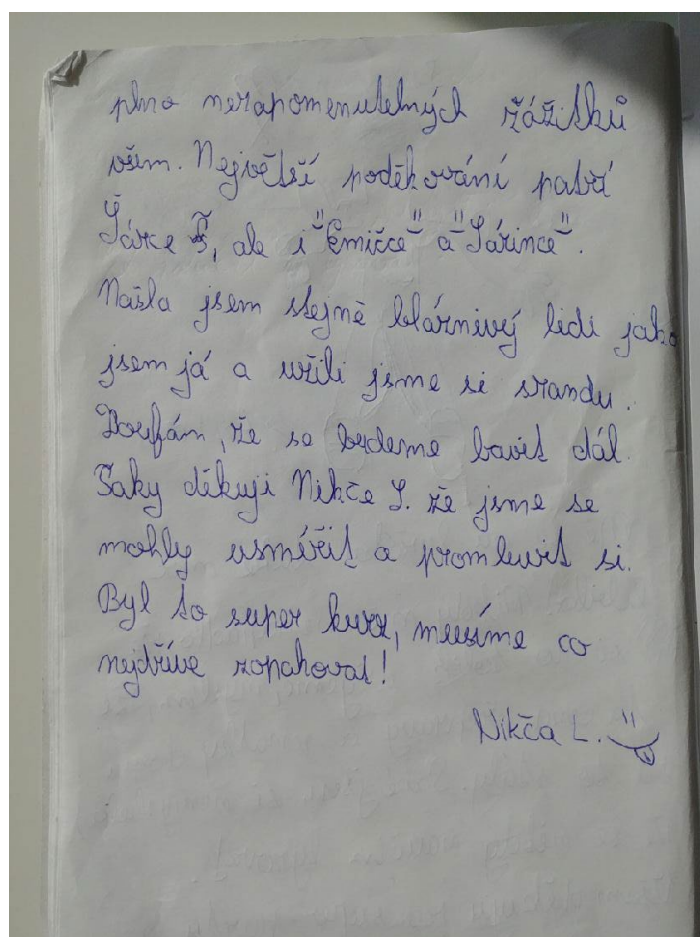 plno nezapomenutelných zážitků
všem. Největší poděkování patří
Šárce Š, ale i "Emičce" a "Sárince".
Našla jsem stejně bláznivý lidi jako
jsem já a užili jsme si srandu.
Doufám, že se budeme bavit dál.
Taky děkuji Nikče S. že jsme se
mohly usmířit a promluvit si.
Byl to super kurz, musíme co
nejdříve zopakovat!
Nikča L.